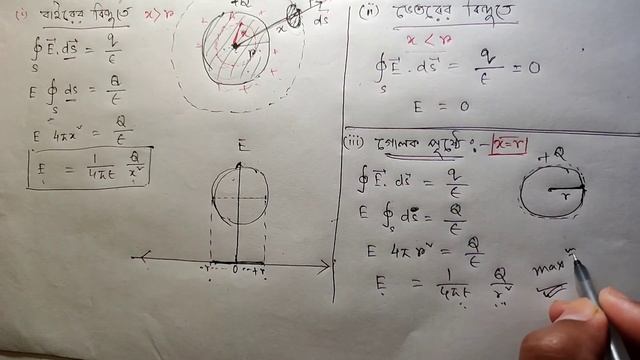 (i) বাইরের বিন্দুতে x>r
∮_S E⃗. ds⃗ = q/ε
E ∮_S ds = Q/ε
E 4πx² = Q/ε
E = 1/4πε Q/x²
+Q
r
x
ds
E
-r 0 +r
(ii) ভেতরের বিন্দুতে
x < r
∮_S E⃗. ds⃗ = q/ε = 0
E = 0
(iii) গোলক পৃষ্ঠে :- x=r
+Q
r
∮ E⃗. ds⃗ = q/ε
E ∮_S ds = Q/ε
E 4πr² = Q/ε
E = 1/4πε Q/r² max^m